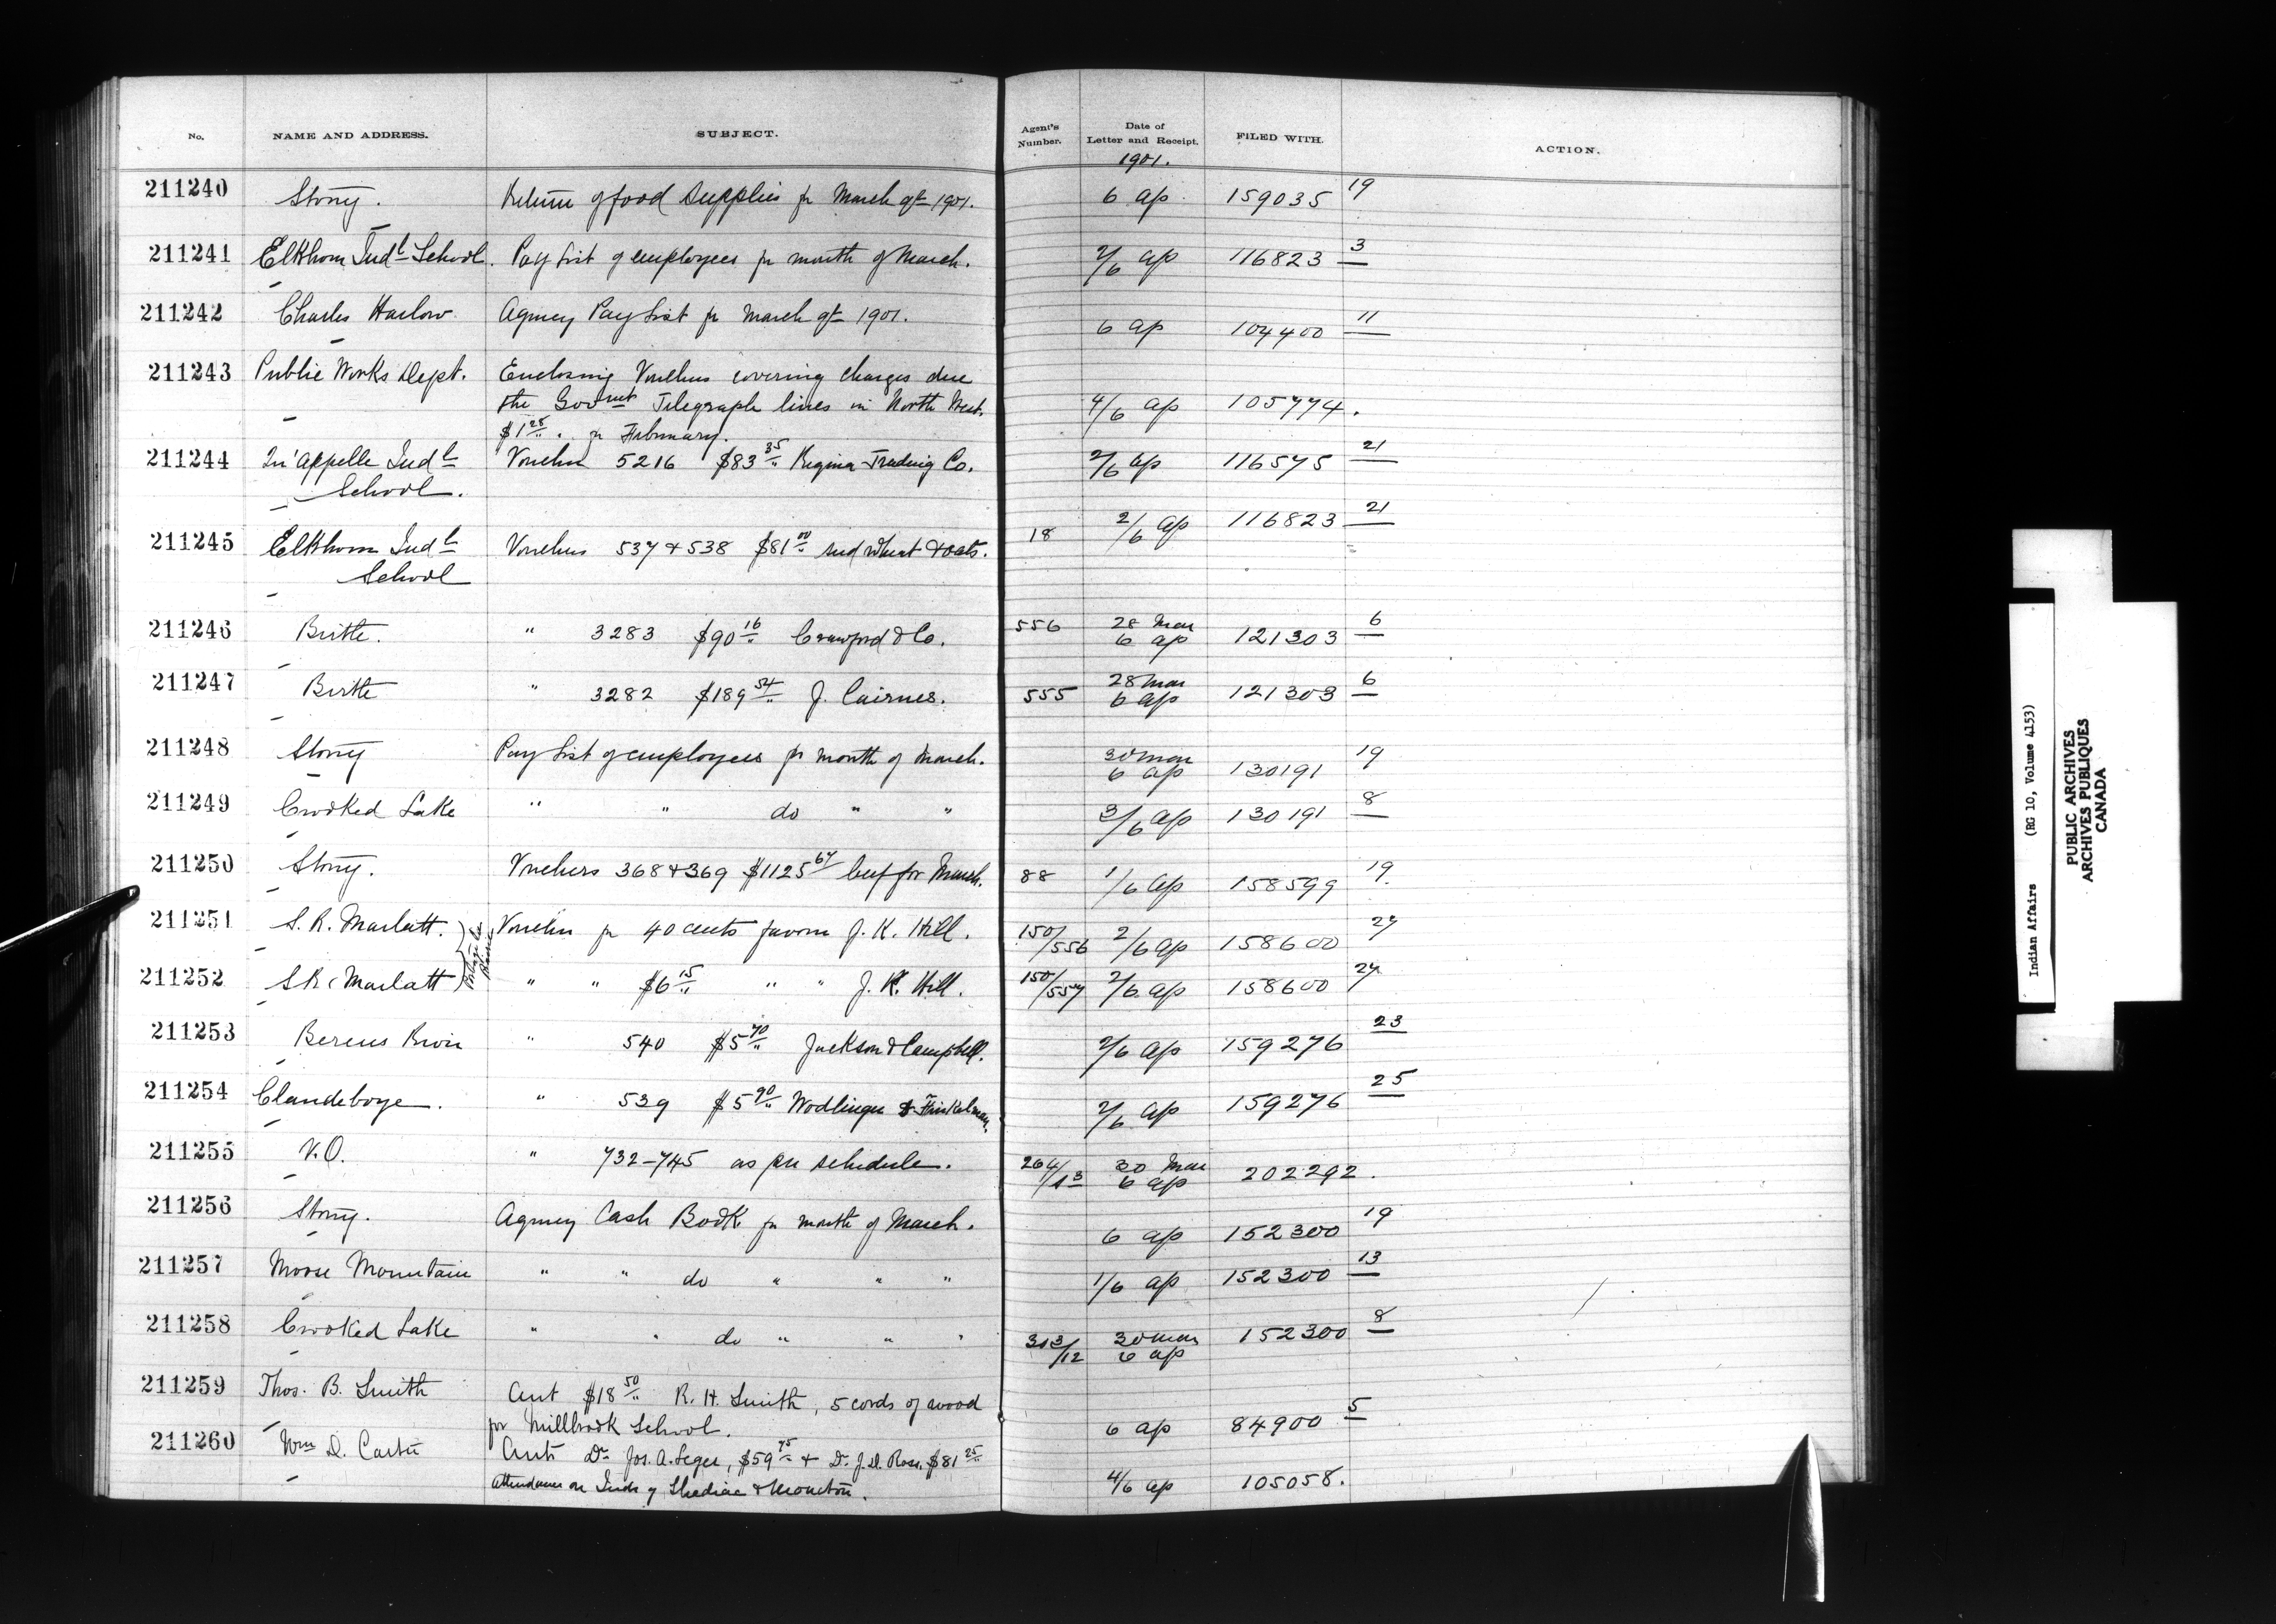 No. NAME AND ADDRESS. SUBJECT. Agent's Number. Date of Letter and Receipt. FILED WITH. ACTION.
1901.
211240 Stony. Return of food supplies for March qr 1901. 6 ap. 159035 19
211241 Elkhorn Indl School. Pay List of employees for month of March. 2/6 ap 116823 3
211242 Charles Harlow. Agency Pay List for March qr 1901. 6 ap 104400 11
211243 Public Works Dept. Enclosing Vouchers covering charges due
the Govmt Telegraph lines in North West. 4/6 ap 105774.
$1 28/" . for February.
211244 Qu'Appelle Indl Voucher 5216 $83 35/" Regina Trading Co. 2/6 ap 116575 21
School.
211245 Elkhorn Indl Vouchers 537 & 538 $81 00/" seed wheat & oats. 18 2/6 ap 116823 21
School
211246 Birtle. " 3283 $90 16/" Crawford & Co. 556 28 Mar 6 ap 121303 6
211247 Birtle " 3282 $189 54/" J. Cairnes. 555 28 Mar 6 ap 121303 6
211248 Stony Pay List of employees for month of March. 30 Mar 6 ap 130191 19
211249 Crooked Lake " " do " " 3/6 ap 130191 8
211250 Stony. Vouchers 368 & 369 $1125 67/" beef for March. 88 1/6 ap 158599 19.
211251 S. R. Marlatt. } Portage la Voucher for 40 cents favour J. K. Hill. 150/556 2/6 ap 158600 27
211252 S R. Marlatt } " " $6 15/" " " J. K. Hill. 150/557 2/6 ap 158600 27
211253 Berens River " 540 $5 70/" Jackson & Campbell. 2/6 ap 159276 23
211254 Clandeboye. " 539 $5 90/" Wodlinger & Finkelman. 2/6 ap 159276 25
211255 V.O. " 732-745 as per schedule. 264/13 30 Mar 6 ap 202292.
211256 Stony. Agency Cash Book for month of March. 6 ap 152300 19
211257 Moose Mountain " " do " " " 1/6 ap 152300 13
211258 Crooked Lake " " do " " " 313/12 30 Mar 6 ap 152300 8
211259 Thos. B. Smith Acct $18 50/" R. H. Smith, 5 cords of wood
for Millbrook School. 6 ap 84900 5
211260 Wm D. Carter Accts Dr. Jos. A. Leger, $59 75/" & Dr. J. D. Ross, $81 25/"
attendance on Inds of Shediac & Moncton. 4/6 ap 105058.
Indian Affairs (RG 10, Volume 4153)
PUBLIC ARCHIVES
ARCHIVES PUBLIQUES
CANADA